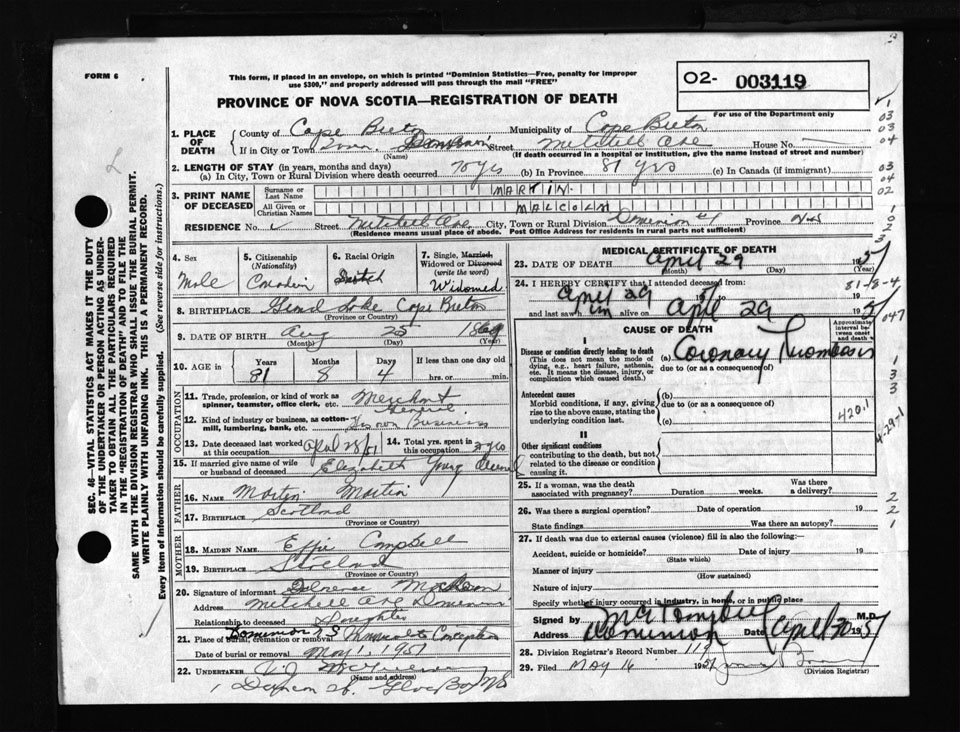 FORM 6
This form, if placed in an envelope, on which is printed "Dominion Statistics—Free, penalty for improper
use $300," and properly addressed will pass through the mail "FREE"
O2- 003119
For use of the Department only
PROVINCE OF NOVA SCOTIA—REGISTRATION OF DEATH
1. PLACE OF DEATH
County of Cape Breton Municipality of Cape Breton
If in City or Town Town Dominion Street Mitchell Ave House No.
(Name) (If death occurred in a hospital or institution, give the name instead of street and number)
2. LENGTH OF STAY (in years, months and days)
(a) In City, Town or Rural Division where death occurred 70 yrs (b) In Province 81 yrs (c) In Canada (if immigrant)
3. PRINT NAME OF DECEASED
Surname or Last Name MARTIN
All Given or Christian Names MALCOLM
RESIDENCE No. Street Mitchell Ave City, Town or Rural Division Dominion Province N.S
(Residence means usual place of abode. Post Office Address for residents in rural parts not sufficient)
4. Sex Male
5. Citizenship (Nationality) Canadian
6. Racial Origin Scotch
7. Single, Married, Widowed or Divorced (write the word) Widowed
8. BIRTHPLACE Lake Cape Breton
(Province or Country)
9. DATE OF BIRTH Aug 25 1869
(Month) (Day) (Year)
10. AGE in Years Months Days If less than one day old
81 8 4 hrs. or min.
OCCUPATION
11. Trade, profession, or kind of work as spinner, teamster, office clerk, etc. Merchant
12. Kind of industry or business, as cotton-mill, lumbering, bank, etc. General Business
13. Date deceased last worked at this occupation April 28/51
14. Total yrs. spent in this occupation
15. If married give name of wife or husband of deceased Elizabeth Young
FATHER
16. NAME Martin Martin
17. BIRTHPLACE Scotland
(Province or Country)
MOTHER
18. MAIDEN NAME Effie Campbell
19. BIRTHPLACE Scotland
(Province or Country)
20. Signature of informant Florence
Address Mitchell Ave Dominion
Relationship to deceased Daughter
21. Place of burial, cremation or removal Dominion N S Immaculate Conception
Date of burial or removal May 1, 1951
22. UNDERTAKER
(Name and address)
Glace Bay NS
MEDICAL CERTIFICATE OF DEATH
23. DATE OF DEATH April 29 195
(Month) (Day) (Year)
81-8-4
24. I HEREBY CERTIFY that I attended deceased from:
April 29 19 to
and last saw him alive on April 29 19
CAUSE OF DEATH
Approximate interval between onset and death
I
Disease or condition directly leading to death
(This does not mean the mode of dying, e.g., heart failure, asthenia, etc. It means the disease, injury, or complication which caused death.)
(a) Coronary Thrombosis
due to (or as a consequence of)
Antecedent causes
Morbid conditions, if any, giving rise to the above cause, stating the underlying condition last.
(b)
due to (or as a consequence of)
(c)
420.1
4-29-1
II
Other significant conditions
contributing to the death, but not related to the disease or condition causing it.
25. If a woman, was the death associated with pregnancy? Duration weeks. Was there a delivery?
26. Was there a surgical operation? Date of operation 19
State findings Was there an autopsy?
27. If death was due to external causes (violence) fill in also the following:—
Accident, suicide or homicide? Date of injury 19
(State which)
Manner of injury
(How sustained)
Nature of injury
Specify whether injury occurred in industry, in home, or in public place
Signed by M.D.
Address Dominion Date April 30 195
28. Division Registrar's Record Number
29. Filed MAY 14 1951
(Division Registrar)
SEC. 46—VITAL STATISTICS ACT MAKES IT THE DUTY
OF THE UNDERTAKER OR PERSON ACTING AS UNDER-
TAKER TO OBTAIN ALL THE PARTICULARS REQUIRED
IN THE "REGISTRATION OF DEATH" AND TO FILE THE
SAME WITH THE DIVISION REGISTRAR WHO SHALL ISSUE THE BURIAL PERMIT.
WRITE PLAINLY WITH UNFADING INK. THIS IS A PERMANENT RECORD.
Every item of information should be carefully supplied. (See reverse side for instructions.)